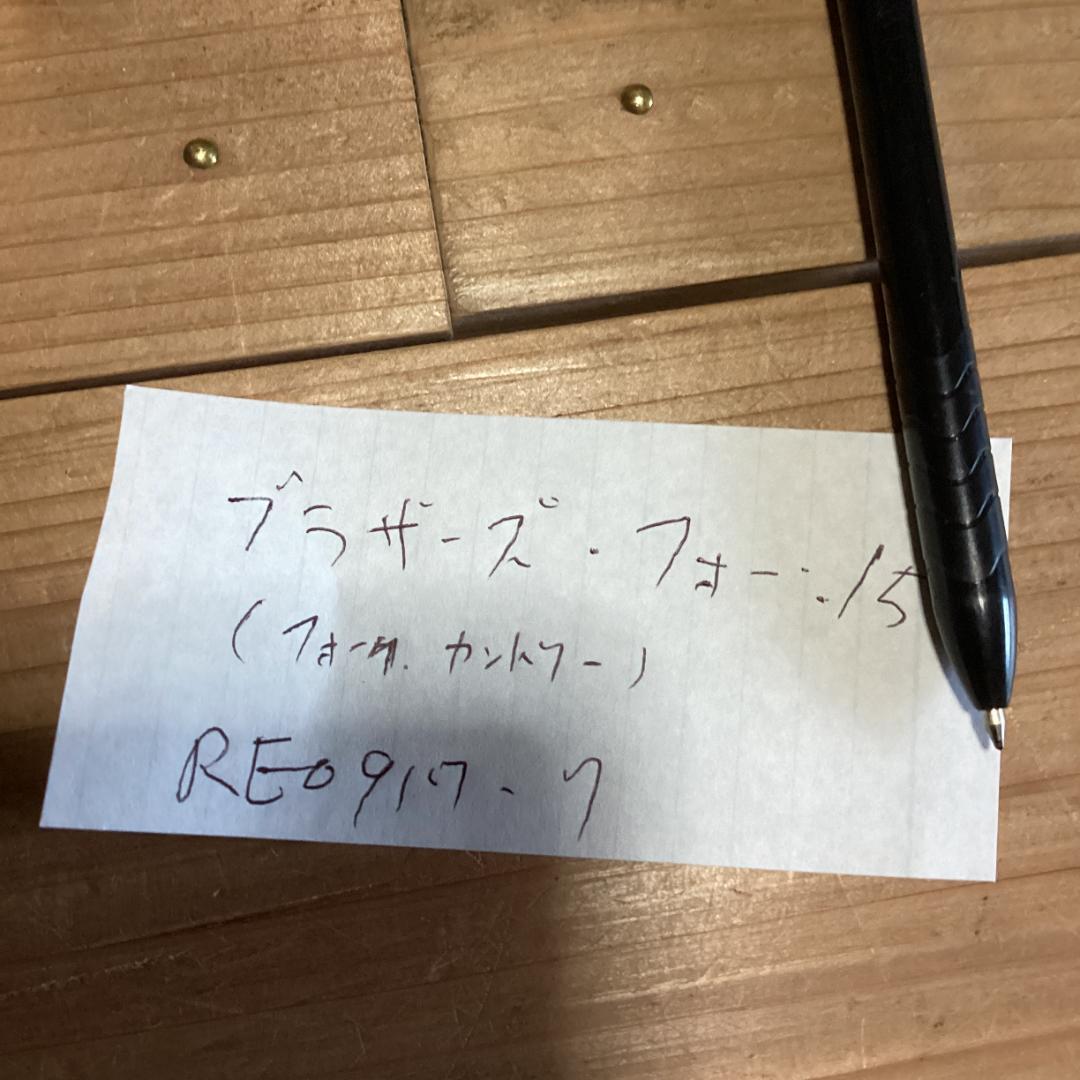 ブラザーズ・フォー:15
(フォーク.カントリー)
RE0917-7